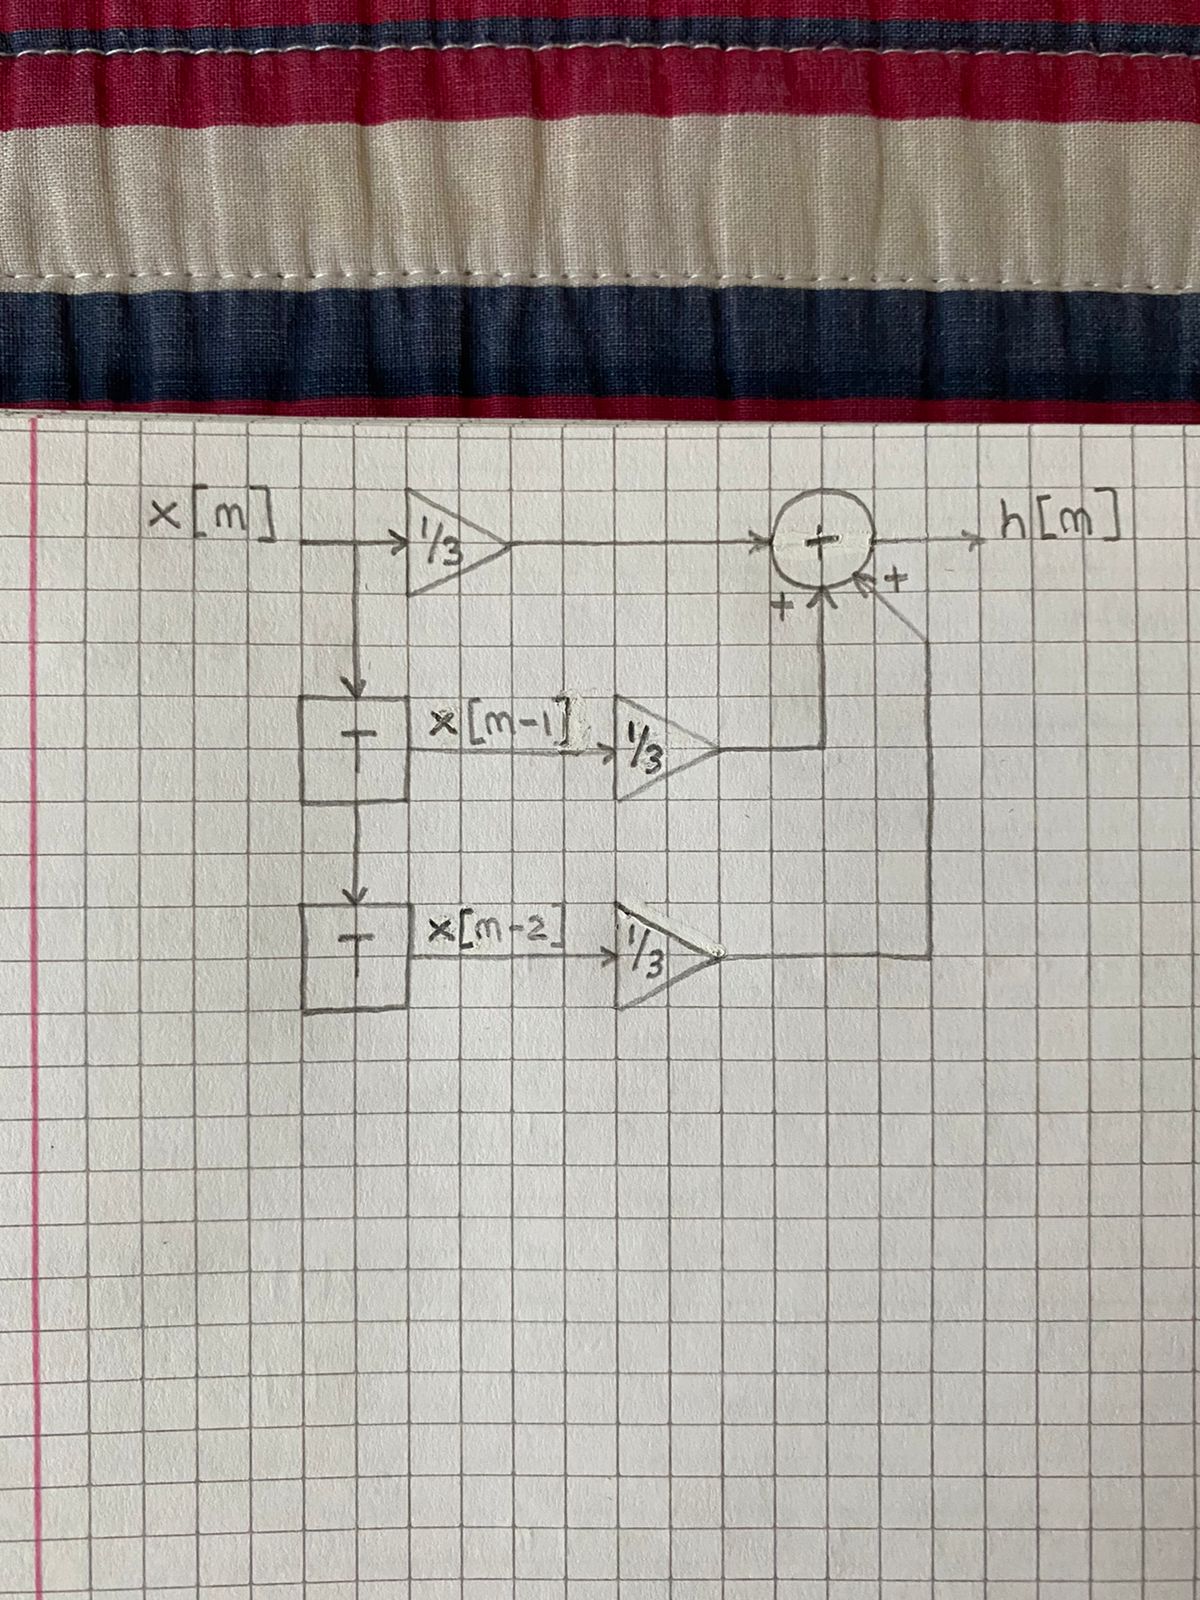 x[m] 1/3 + h[m]
+ +
T x[m-1] 1/3
T x[m-2] 1/3